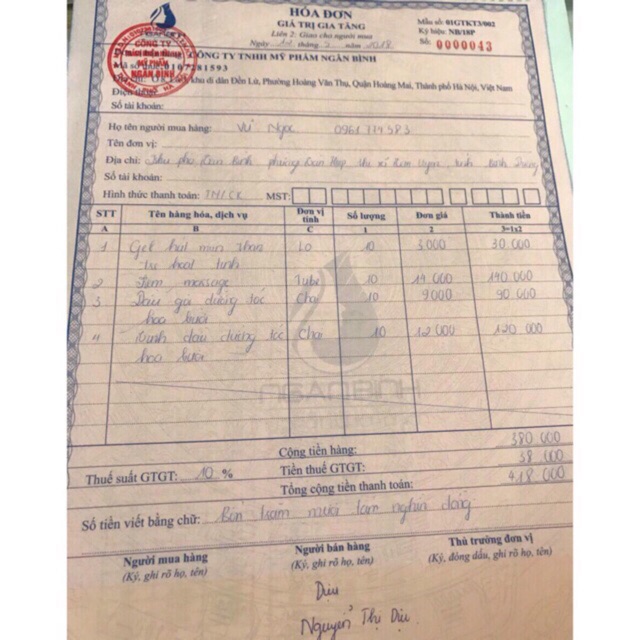 HÓA ĐƠN
GIÁ TRỊ GIA TĂNG
Liên 2: Giao cho người mua
Ngày tháng năm 2018
Mẫu số: 01GTKT3/002
Ký hiệu: NB/18P
Số: 0000043
CÔNG TY TNHH MỸ PHẨM NGÂN BÌNH
Mã số thuế: 0107281593
khu di dân Đền Lừ, Phường Hoàng Văn Thụ, Quận Hoàng Mai, Thành phố Hà Nội, Việt Nam
Điện thoại:
Số tài khoản:
Họ tên người mua hàng: Vũ Ngọc 0961779383
Tên đơn vị:
Địa chỉ: Khu phố Tân Bình phường Tân Hiệp thị xã Tân Uyên, tỉnh Bình Dương
Số tài khoản:
Hình thức thanh toán: TM/CK MST:
STT Tên hàng hóa, dịch vụ Đơn vị tính Số lượng Đơn giá Thành tiền
A B C 1 2 3=1x2
1 Gel hút mụn than Lọ 10 3.000 30.000
hoạt tính
2 Kem massage Tube 10 14 000 140.000
3 Dầu gội dưỡng tóc Chai 10 9000 90 000
hoa bưởi
4 Tinh dầu dưỡng tóc Chai 10 12 000 120 000
hoa bưởi
Cộng tiền hàng: 380 000
Thuế suất GTGT: 10 % Tiền thuế GTGT: 38 000
Tổng cộng tiền thanh toán: 418 000
Số tiền viết bằng chữ: Bốn trăm mười tám nghìn đồng
Người mua hàng Người bán hàng Thủ trưởng đơn vị
(Ký, ghi rõ họ, tên) (Ký, ghi rõ họ, tên) (Ký, đóng dấu, ghi rõ họ, tên)
Dịu
Nguyễn Thị Dịu